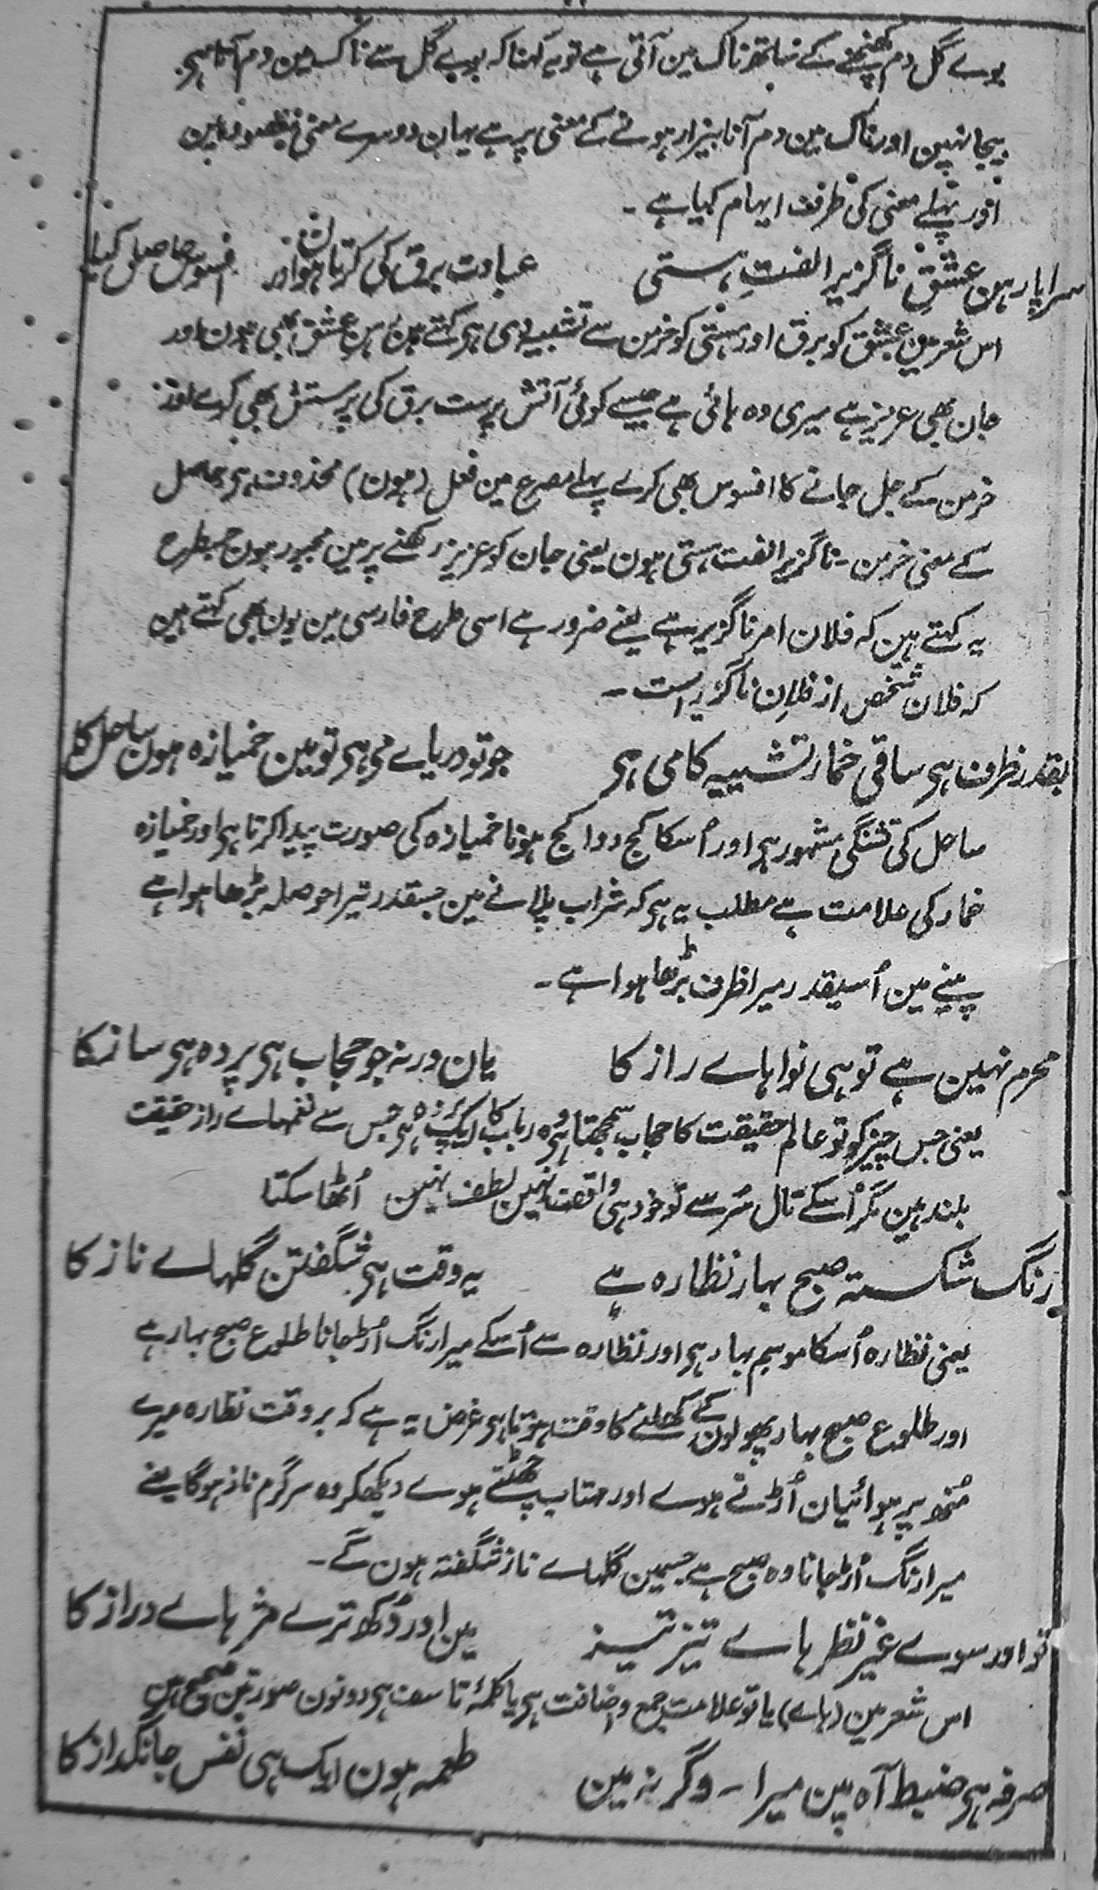 بوے گل دم کھنچنے کے ساتھ ناک مین آتی ہے تو یہ کہنا کہ بوے گل سے ناک مین دم آتا ہی
بیجا نہین اور ناک مین دم آنا بیزار ہونے کے معنی پر ہے یہان دوسرے معنی مقصود ہین
اور پہلے معنی کی طرف ایہام کیا ہے ۔
سراپا رہن عشق ناگزیر الفتِ ہستی عبادت برق کی کرتا ہون اور افسوس حاصل کا
اس شعر مین عشق کو برق اور ہستی کو خرمن سے تشبیہ دی ہی کہتے ہین رہن عشق بھی ہون اور
جان بھی عزیز ہے میری وہ مائی ہے جیسے کوئی آتش پرست برق کی پرستش بھی کرے اور
خرمن کے جل جانے کا افسوس بھی کرے پہلے مصرع مین فعل (ہون) محذوف ہی حاصل
کے معنی خرمن ۔ ناگزیر الفت ہستی ہون یعنی جان کو عزیز رکھنے پر مین مجبور ہون جسطرح
یہ کہتے ہین کہ فلان امر ناگزیر ہے یعنے ضرور ہے اسی طرح فارسی مین یون بھی کہتے ہین
کہ فلان شخص از فلان ناگزیر است ۔
بقدر ظرف ہی ساقی خمار تشنہ کامی ہی جو تو دریاے می ہی تو مین خمیازہ ہون ساحل کا
ساحل کی تشنگی مشہور ہی اور اُسکا کج دوا کج ہونا خمیازہ کی صورت پیدا کرتا ہی اور خمیازہ
خمار کی علامت ہے مطلب یہ ہی کہ شراب پلانے مین جسقدر تیرا حوصلہ بڑھا ہوا ہے
پینے مین اُسیقدر میرا ظرف بڑھا ہوا ہے ۔
محرم نہین ہے تو ہی نوا ہاے راز کا یان ورنہ جو حجاب ہی پردہ ہی ساز کا
یعنی جس چیز کو تو عالم حقیقت کا حجاب سمجھتا ہی وہ رباب کا ایک پردہ ہی جس سے نغمہاے راز حقیقت
بلند ہین مگر اُسکے تال سُر سے تو خود ہی واقف نہین لطف نہین اُٹھا سکتا
رنگ شکستہ صبح بہار نظارہ ہے یہ وقت ہی شگفتن گلہاے ناز کا
یعنی نظارہ اُسکا موسم بہار ہی اور نظارہ سے اُسکے میرا رنگ اُڑجانا طلوع صبح بہار ہے
اور طلوع صبح بہار پھولون کے کھلنے کا وقت ہوتا ہی غرض یہ ہے کہ بروقت نظارہ میرے
مُنھ پر ہوائیان اُڑتے ہوے اور مہتاب چھٹتے ہوے دیکھکر وہ سرگرم ناز ہوگا یعنے
میرا رنگ اُڑجانا وہ صبح ہے جسمین گلہاے ناز شگفتہ ہون گے ۔
تو اور سوے غیر نظر ہاے تیز تیز مین اور دُکھ ترے مژہ ہاے دراز کا
اس شعر مین (ہاے) یا تو علامت جمع و اضافت ہی یا کلمۂ تاسف ہی دونون صورتین صحیح ہین
صرفہ ہی ضبط آہ مین میرا ۔ وگرنہ مین طعمہ ہون ایک ہی نفس جانگداز کا